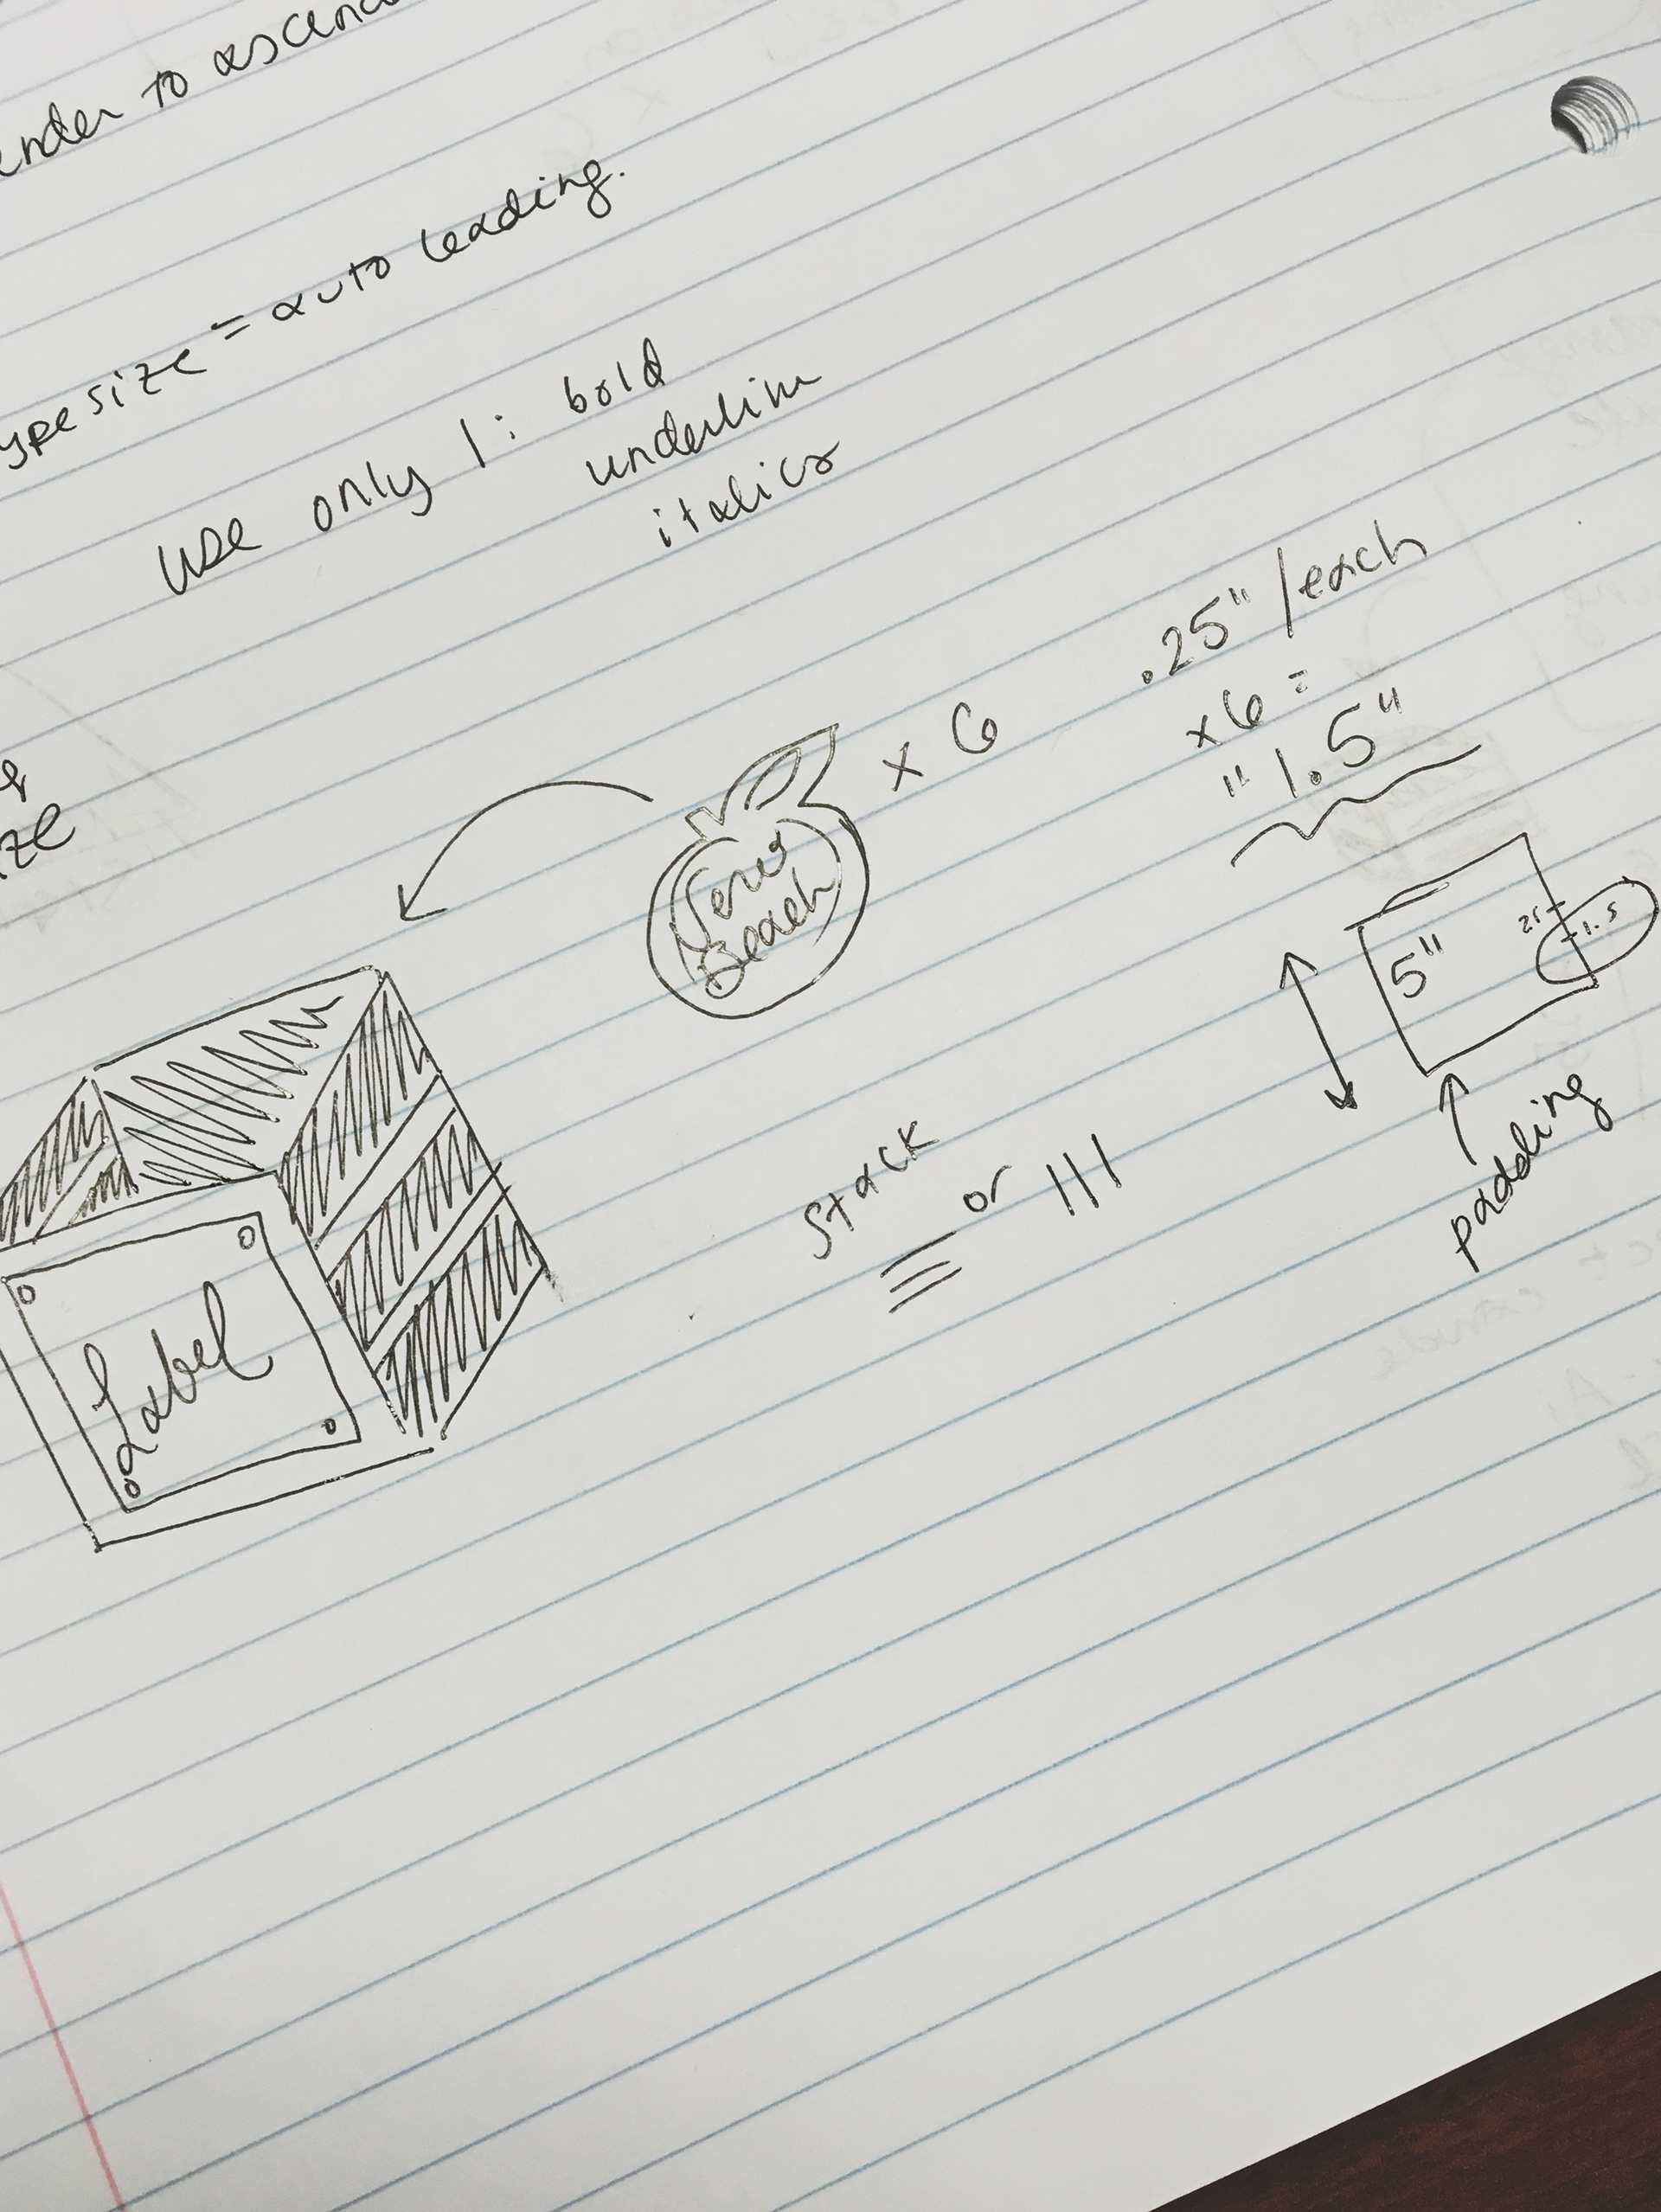 ender to ascend
ype size = auto leading.
use only 1: bold
underline
italics
ze
x 6
.25" /each
x6 =
" 1.5"
Vero
Beach
5"
.25
1.5
padding
stack
or
Label